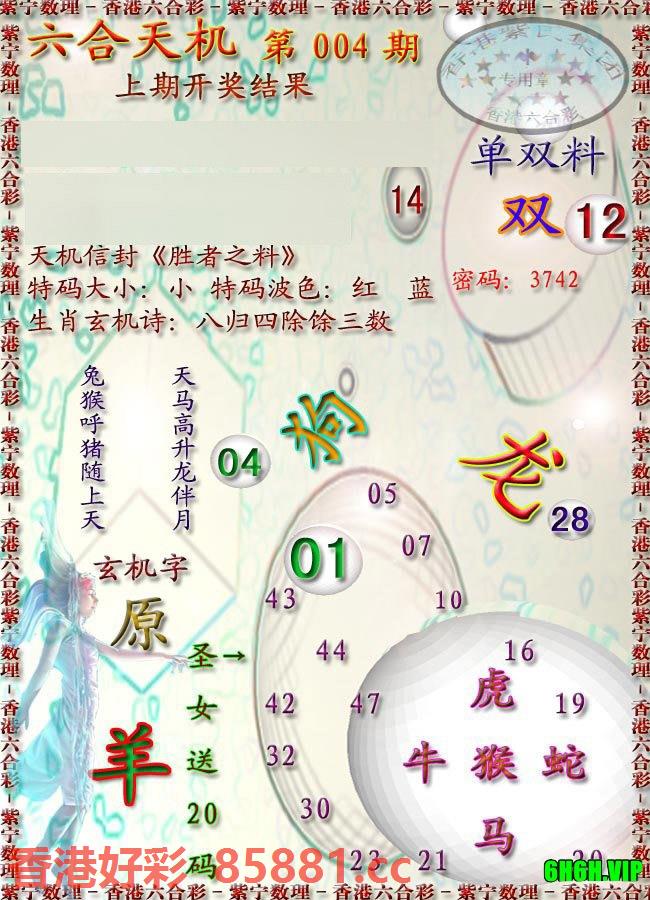 紫宁数理－香港六合彩－紫宁数理－香港六合彩－紫宁数理－香港六合彩－紫宁数理
六合天机 第 004 期
上期开奖结果
专用章
香港六合彩
单双料
14
双 12
天机信封《胜者之料》
特码大小：小 特码波色：红 蓝
密码：3742
生肖玄机诗：八归四除馀三数
天马高升龙伴月
兔猴呼猪随上天
04
狗
龙
28
05
01
07
43
10
玄机字
原
44
16
圣女送20码
→
虎
42
47
19
羊
32
牛 猴 蛇
30
马
23
21
20
香港好彩-85881.cc
6H6H.VIP
紫宁数理－香港六合彩－紫宁数理－香港六合彩－紫宁数理－香港六合彩－紫宁数理